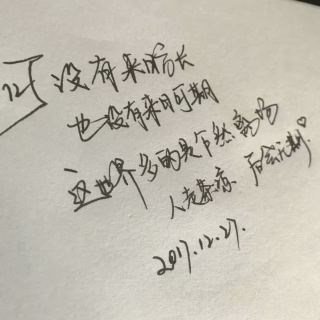 12
没有来日方长
也没有来日可期
这世界多的是乍然离场
人走茶凉、后会无期.
2017.12.27.